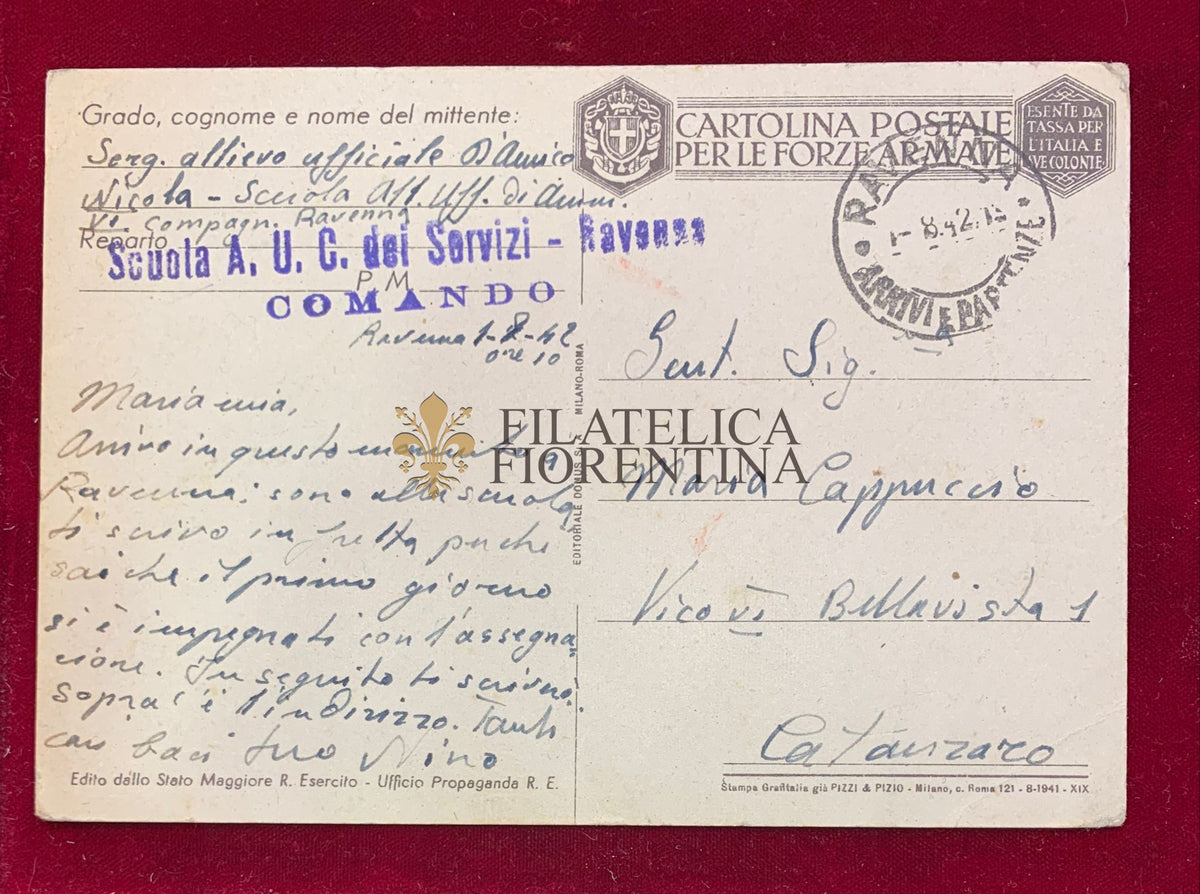 Grado, cognome e nome del mittente:
Serg. allievo ufficiale D'Amico
Nicola - Scuola All. Uff. di Amm.
VI. Compagn. Ravenna
Reparto
Scuola A. U. C. dei Servizi - Ravenna
P. M.
COMANDO
Ravenna 1-8-42
ore 10
Maria mia,
Arrivo in questo momento a
Ravenna; sono alla scuola
ti scrivo in fretta perché
sai che il primo giorno
si è impegnati con l'assegna
zione. In seguito ti scriverò;
sopra c'è l'indirizzo. Tanti
cari baci tuo Nino
Edito dallo Stato Maggiore R. Esercito - Ufficio Propaganda R. E.
EDITORIALE DOMUS S. A. MILANO-ROMA
CARTOLINA POSTALE
PER LE FORZE ARMATE
ESENTE DA
TASSA PER
L'ITALIA E
SUE COLONIE
RAVENNA
1-8.42.15
ARRIVI E PARTENZE
Gent. Sig.
FILATELICA
FIORENTINA
Maria Cappuccio
Vico VI Bellavista 1
Catanzaro
Stampa Grafitalia già PIZZI & PIZIO - Milano, c. Roma 121 - 8-1941 - XIX